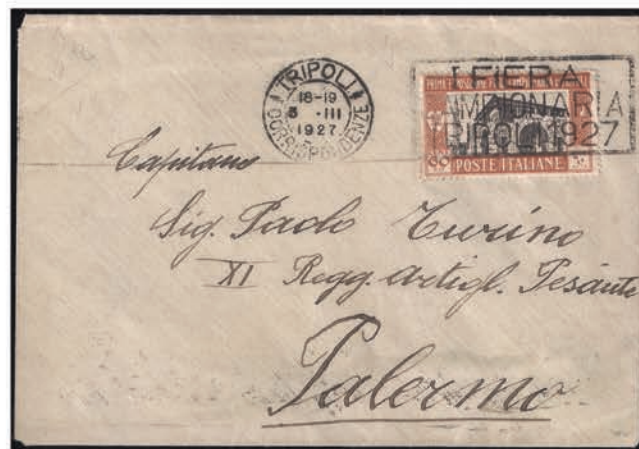 TRIPOLI
18-19
5 ·III
1927
CORRISPONDENZE
I FIERA
CAMPIONARIA
TRIPOLI 1927
POSTE ITALIANE
Capitano
Sig. Paolo Turino
XI Regg. Artigl. Pesante
Palermo